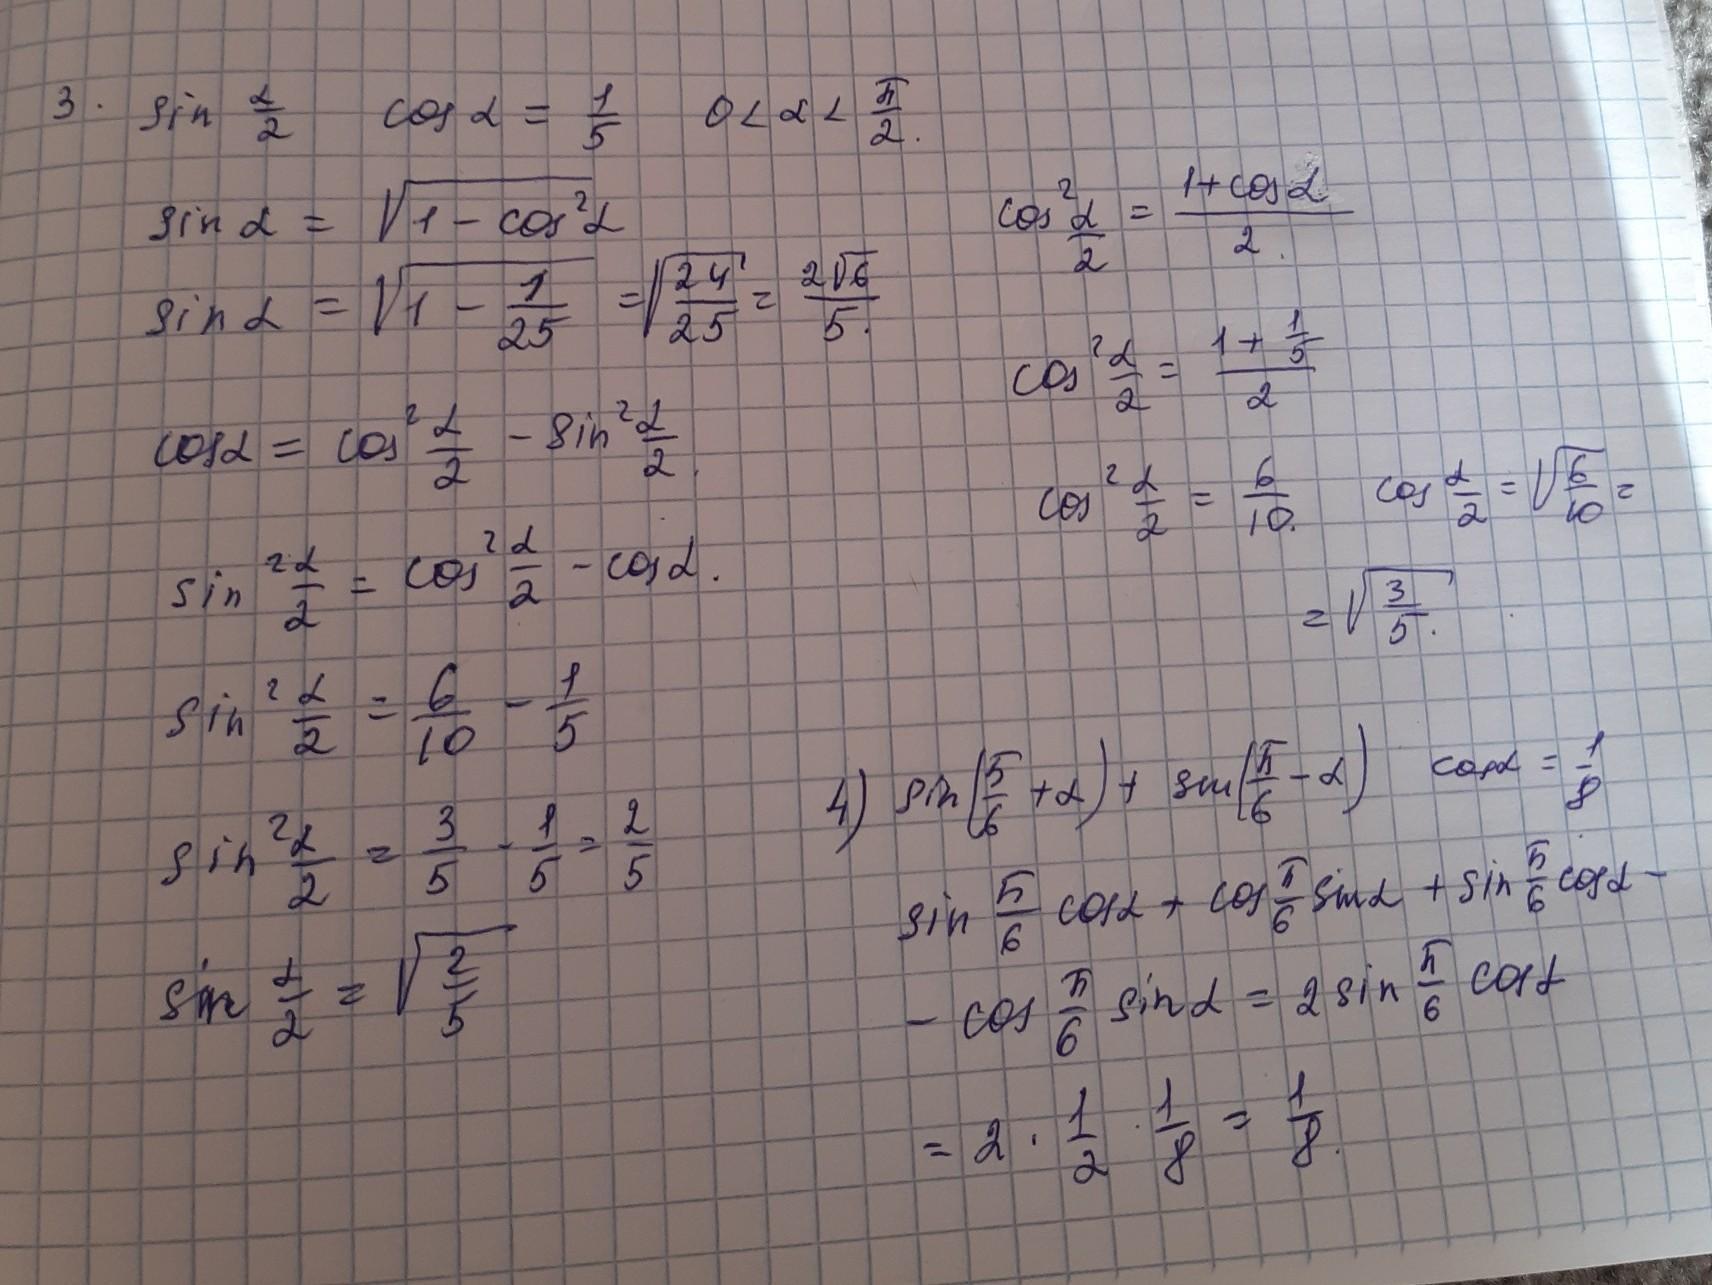 3. sin α/2 cos α = 1/5 0 < α < π/2.
sin α = √(1 - cos²α)
sin α = √(1 - 1/25) = √(24/25) = 2√6/5.
cos α = cos² α/2 - sin² α/2.
sin² α/2 = cos² α/2 - cos α.
sin² α/2 = 6/10 - 1/5
sin² α/2 = 3/5 - 1/5 = 2/5
sin α/2 = √(2/5)
cos² α/2 = (1 + cos α)/2.
cos² α/2 = (1 + 1/5)/2
cos² α/2 = 6/10. cos α/2 = √(6/10) =
= √(3/5).
4) sin(π/6 + α) + sin(π/6 - α) cos α = 1/8
sin π/6 cos α + cos π/6 sin α + sin π/6 cos α -
- cos π/6 sin α = 2 sin π/6 cos α
= 2 · 1/2 · 1/8 = 1/8.